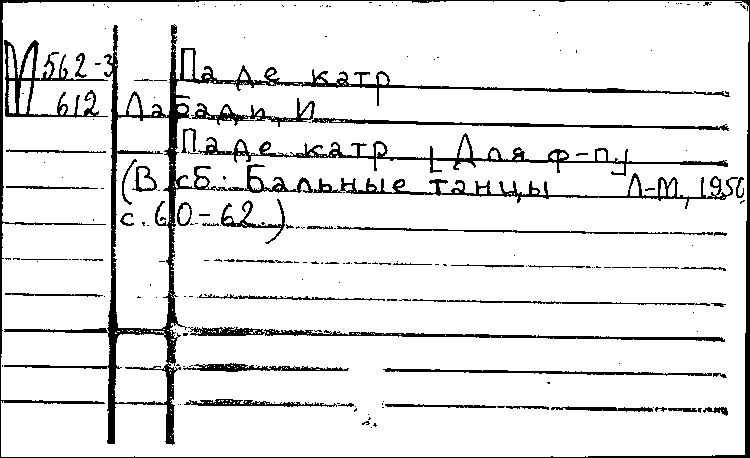 М 562-3 Па де катр
612 Лабади, И
Па де катр [Для ф-п]
(В сб. Бальные танцы Л-М, 1950
с. 60-62.)